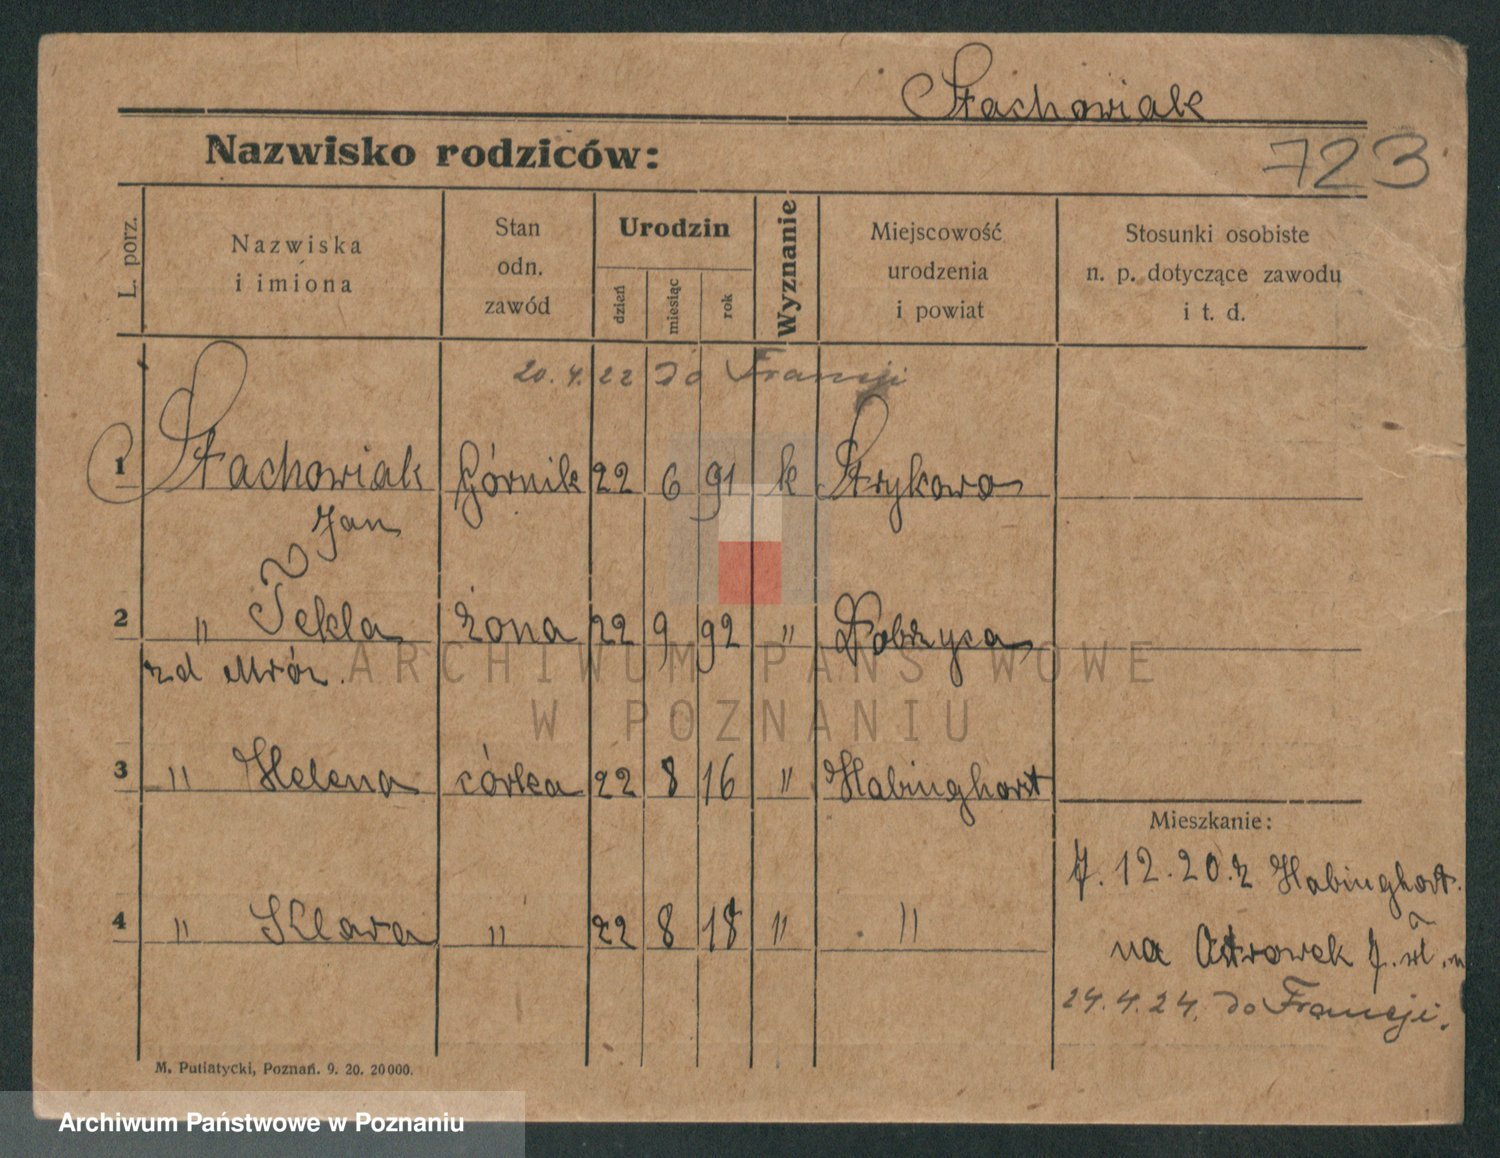 Stachowiak
Nazwisko rodziców:
723
L. porz.
Nazwiska
i imiona
Stan
odn.
zawód
Urodzin
dzień
miesiąc
rok
Wyznanie
Miejscowość
urodzenia
i powiat
Stosunki osobiste
n. p. dotyczące zawodu
i t. d.
20. 4. 22 do Francji
1 Stachowiak Górnik 22 6 91 k Strykowo
Jan
2 " Tekla żona 22 9 92 " Dobrzyca
zd Mróz.
3 " Helena córka 22 8 16 " Habinghorst
4 " Klara " 22 8 18 " "
Mieszkanie:
7. 12. 20. z Habinghorst.
na Ostrowek
24. 4. 24. do Francji.
M. Putiatycki, Poznań. 9. 20. 20000.
ARCHIWUM PAŃSTWOWE
W POZNANIU
Archiwum Państwowe w Poznaniu